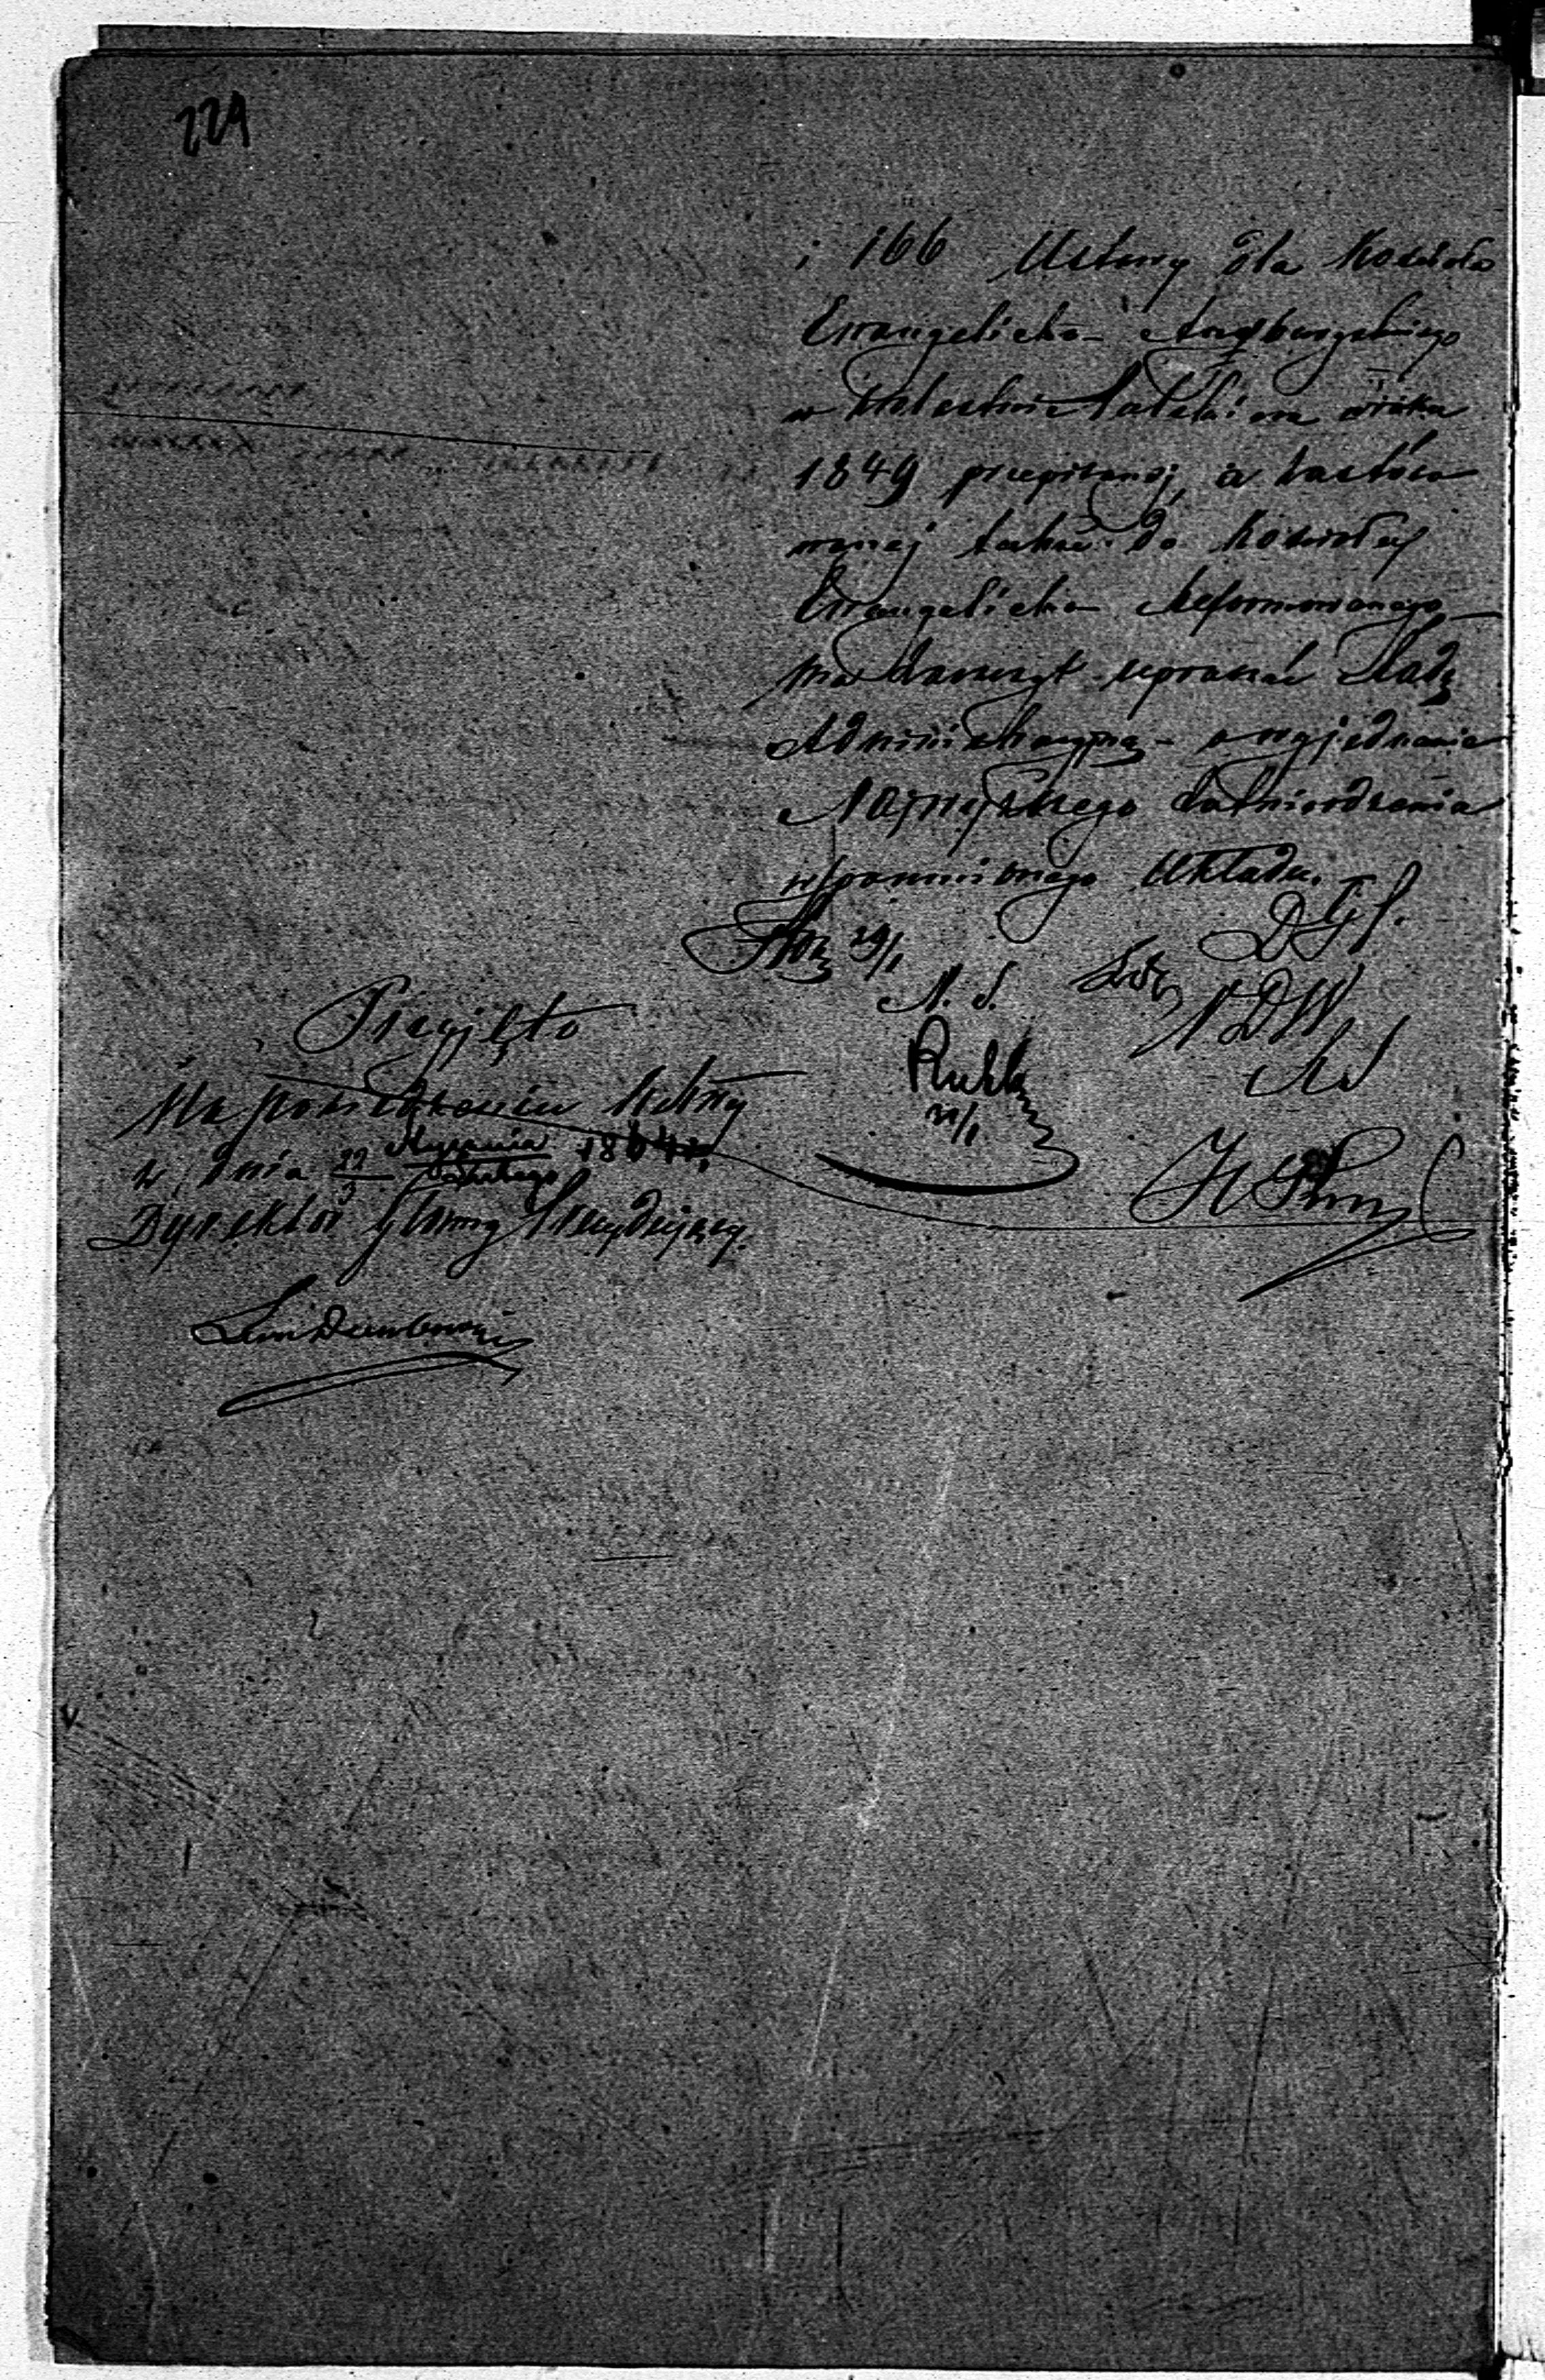 224
i 166 Ustawy dla Kościoła
Ewangelicko-Augsburgskiego
w Królestwie Polskiem w roku
1849 przepisanej, a zastóso
wanej także do Kościoła
Ewangelicko Reformowanego
ma zaszczyt upraszać Radę
Administracyjną o wyjednanie
Najwyższego zatwierdzenia
wspomnionego Układu.
29/1
DGP.
N. S.
NDW
31/1
Przyjęto
Na posiedzeniu
w dnia 22 Stycznia 1864 r.
3 Lutego
Dyrektor Główny Prezydujący.